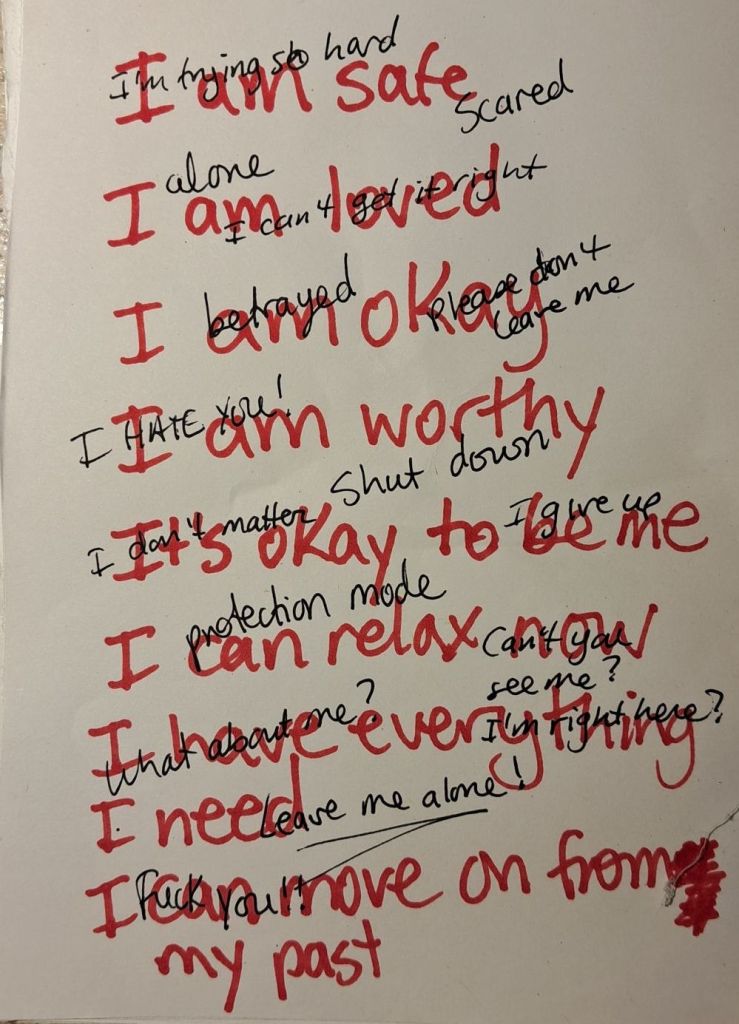 I'm trying so hard
I am safe
Scared
alone
I am loved
I can't get it right
betrayed
I am okay
Please don't
leave me
I HATE YOU!
I am worthy
Shut down
I don't matter
It's okay to be me
I give up
protection mode
I can relax now
Can't you
see me?
I'm right here?
What about me?
I have everything
I need
Leave me alone!
Fuck you!!
I can move on from
my past